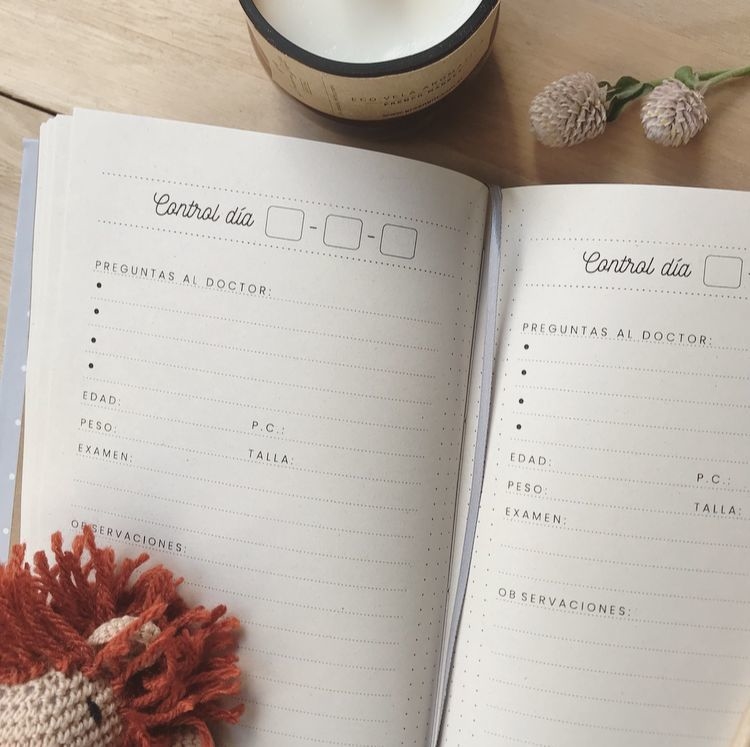 ECO VELA AROMA
Control día - -
PREGUNTAS AL DOCTOR:
•
•
•
•
EDAD:
P.C.:
PESO:
TALLA:
EXAMEN:
OBSERVACIONES:
Control día -
PREGUNTAS AL DOCTOR:
•
•
•
•
EDAD:
P.C.:
PESO:
TALLA:
EXAMEN:
OBSERVACIONES: